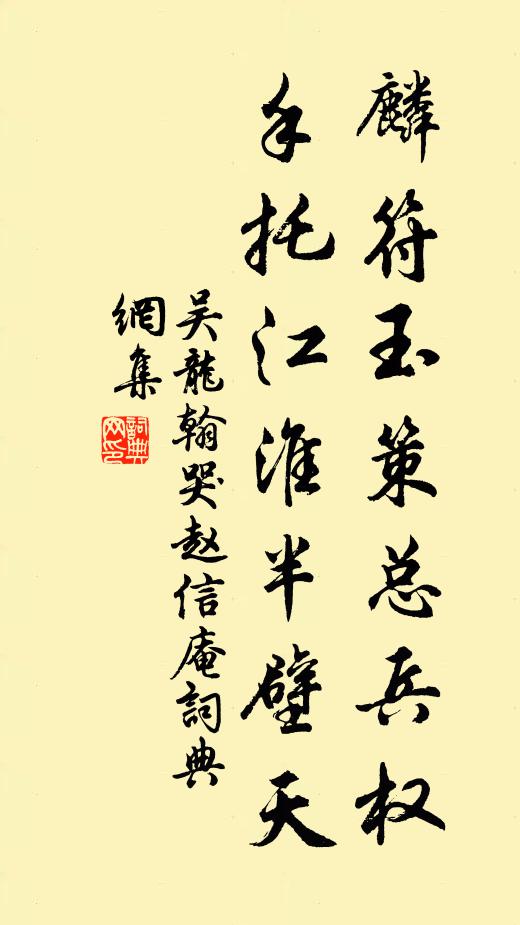 麟符玉策总兵权
手托江淮半壁天
吴龍翰哭赵信庵詞典
網集
詞典网印